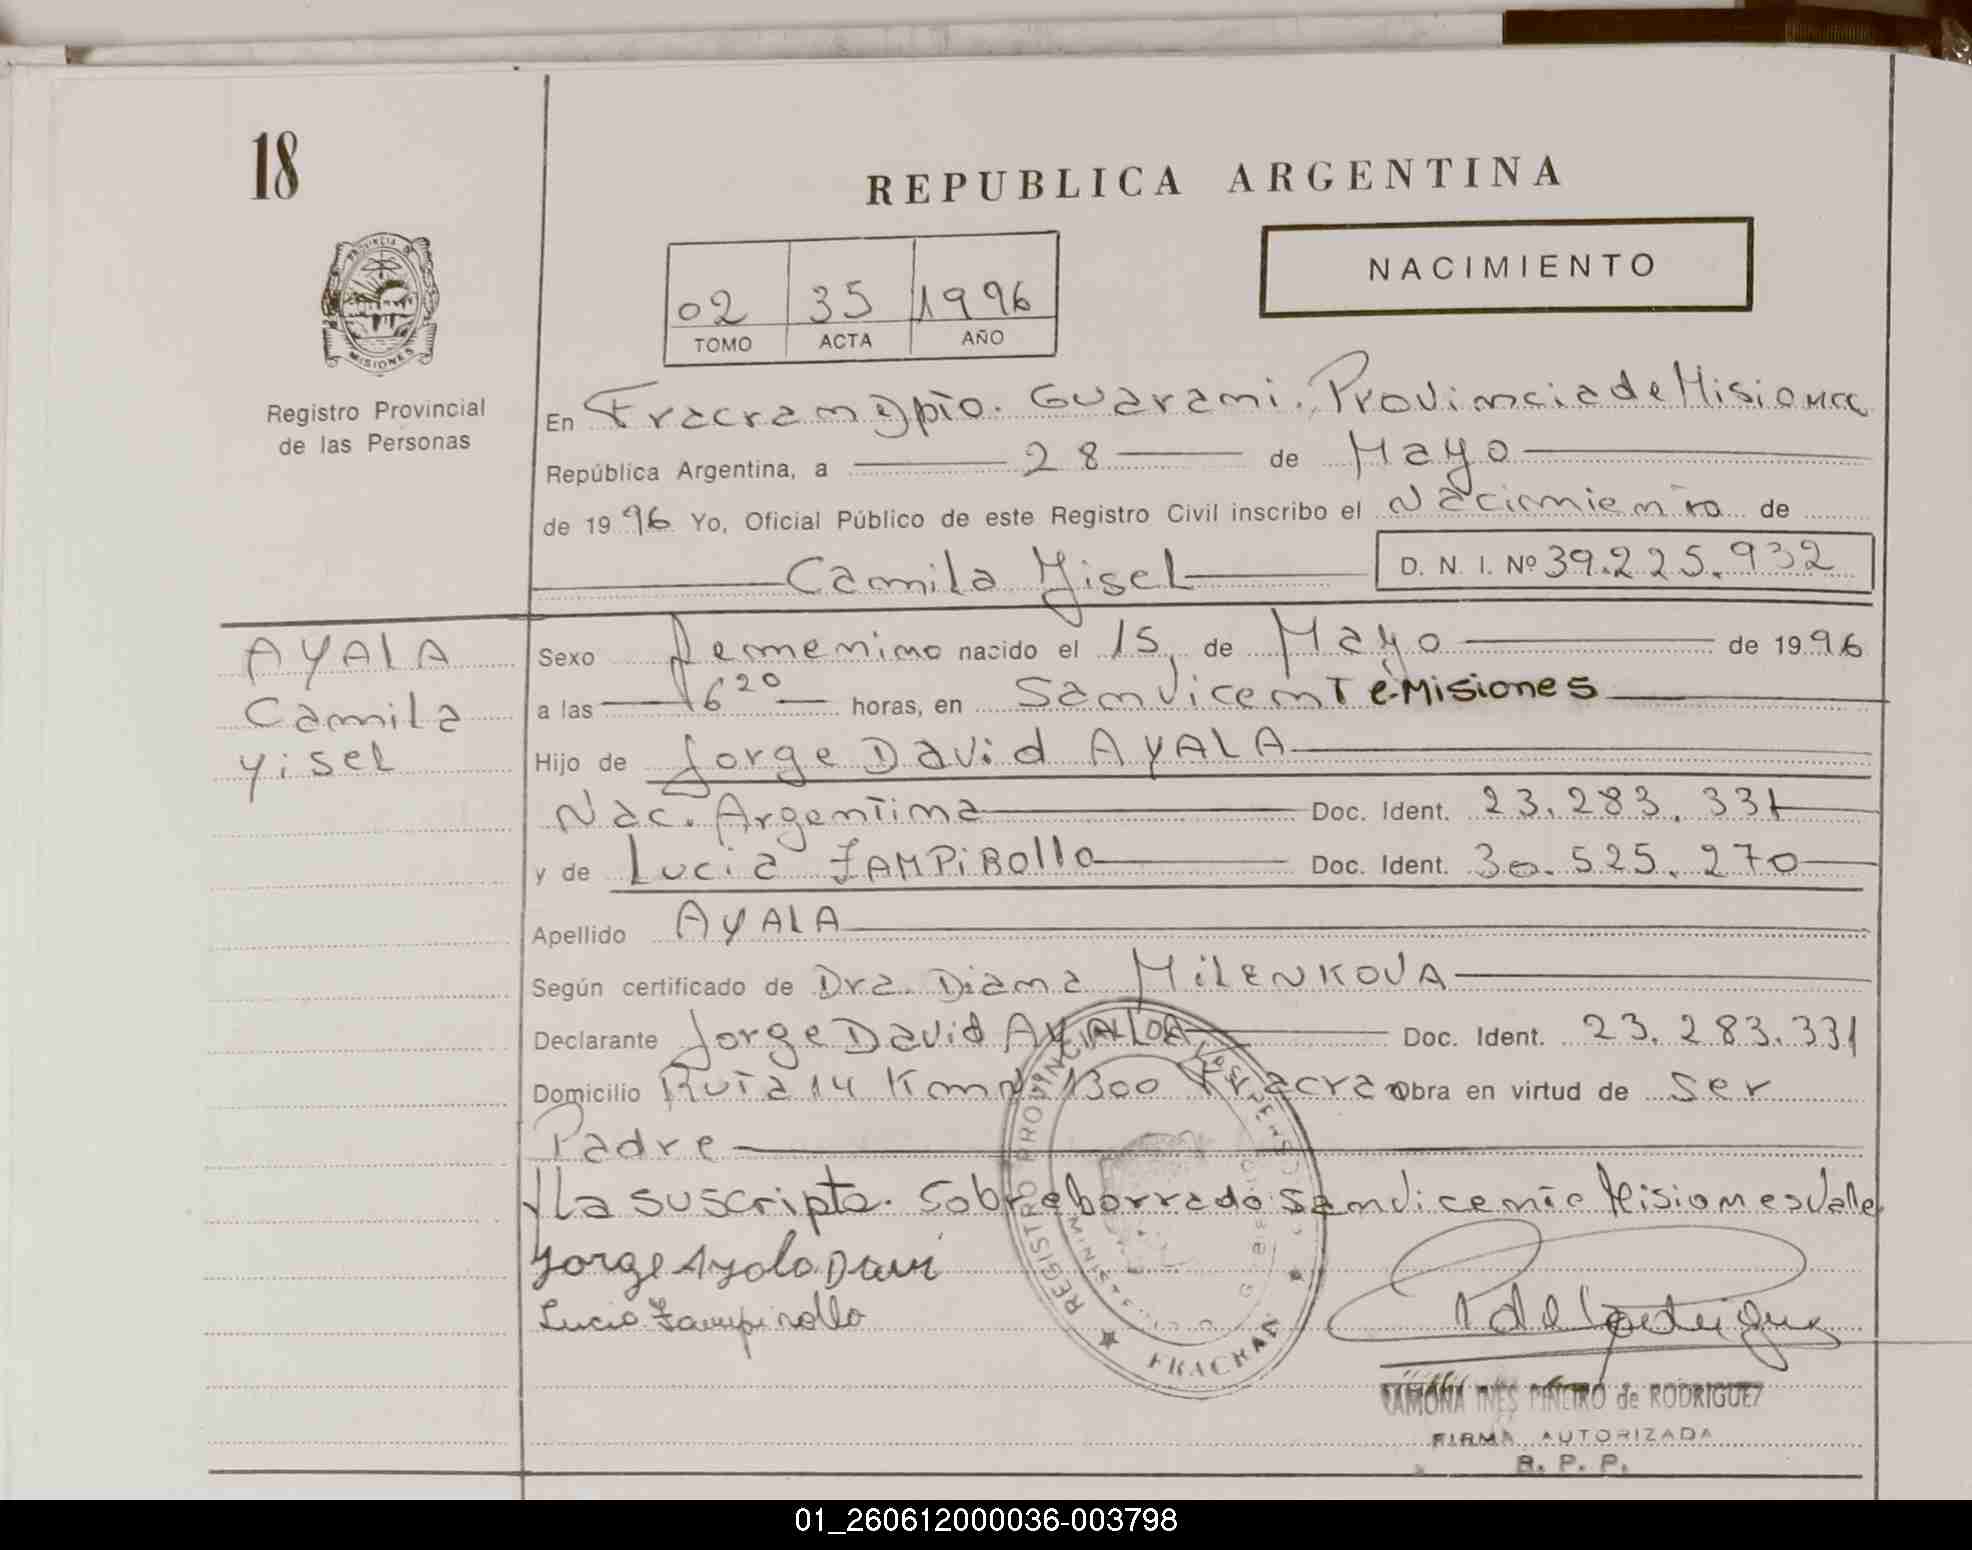 18
REPUBLICA ARGENTINA
PROVINCIA DE
MISIONES
Registro Provincial
de las Personas
02 35 1996
TOMO ACTA AÑO
NACIMIENTO
En Fracran Dpto. Guarani. Provincia de Misiones
República Argentina, a 28 de Mayo
de 1996 Yo, Oficial Público de este Registro Civil inscribo el Nacimiento de
Camila Yisel D. N. I. Nº 39.225.932
AYALA
Camila
Yisel
Sexo Femenino nacido el 15 de Mayo de 1996
a las 16 20 horas, en San Vicente-Misiones
Hijo de Jorge David AYALA
Nac. Argentina Doc. Ident. 23.283.331
y de Lucia ZAMPIROLLO Doc. Ident. 30.525.270
Apellido AYALA
Según certificado de Dra. Diana MILENKOVA
Declarante Jorge David AYALA Doc. Ident. 23.283.331
Domicilio Ruta 14 Km Nº 1300 Fracran Obra en virtud de ser
Padre
y la suscripta. Sobre borrado San Vicente Misiones Vale
Jorge Ayala Davi
Lucia Zampirollo
REGISTRO PROVINCIAL DE LAS PERSONAS
FRACRAN
RAMONA INES PIÑEIRO de RODRIGUEZ
FIRMA AUTORIZADA
R. P. P.
01_260612000036-003798